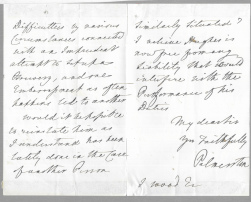 Difficulties by various
Circumstances connected
with an Imprudent
attempt to set up a
Brewery, and one
Embarrassment as often
happens led to another
would it be possible
to reinstate him as
I understand has been
lately done in the Case
of another Person
Similarly Situated?
I believe Hughes is
now free from any
Liability that would
interfere with the
Performance of his
Duties
My dear Sir
Yrs faithfully
Palmerston